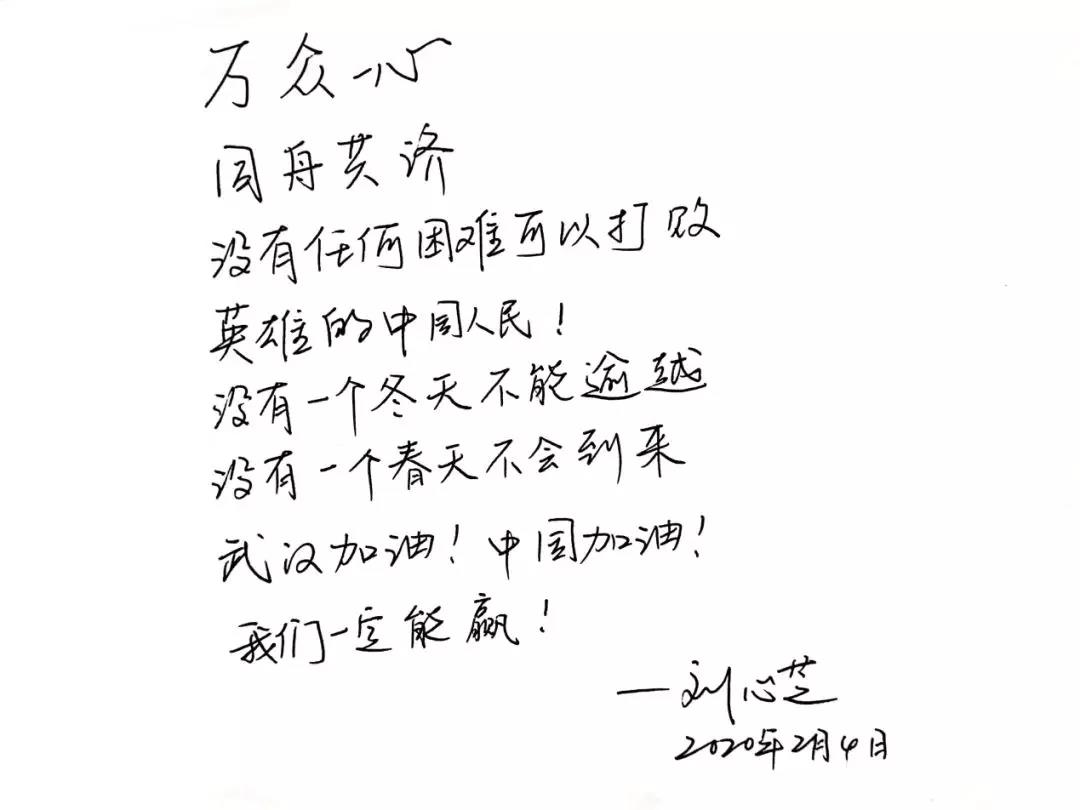 万众一心
同舟共济
没有任何困难可以打败
英雄的中国人民!
没有一个冬天不能逾越
没有一个春天不会到来
武汉加油!中国加油!
我们一定能赢!
——刘心芝
2020年2月4日